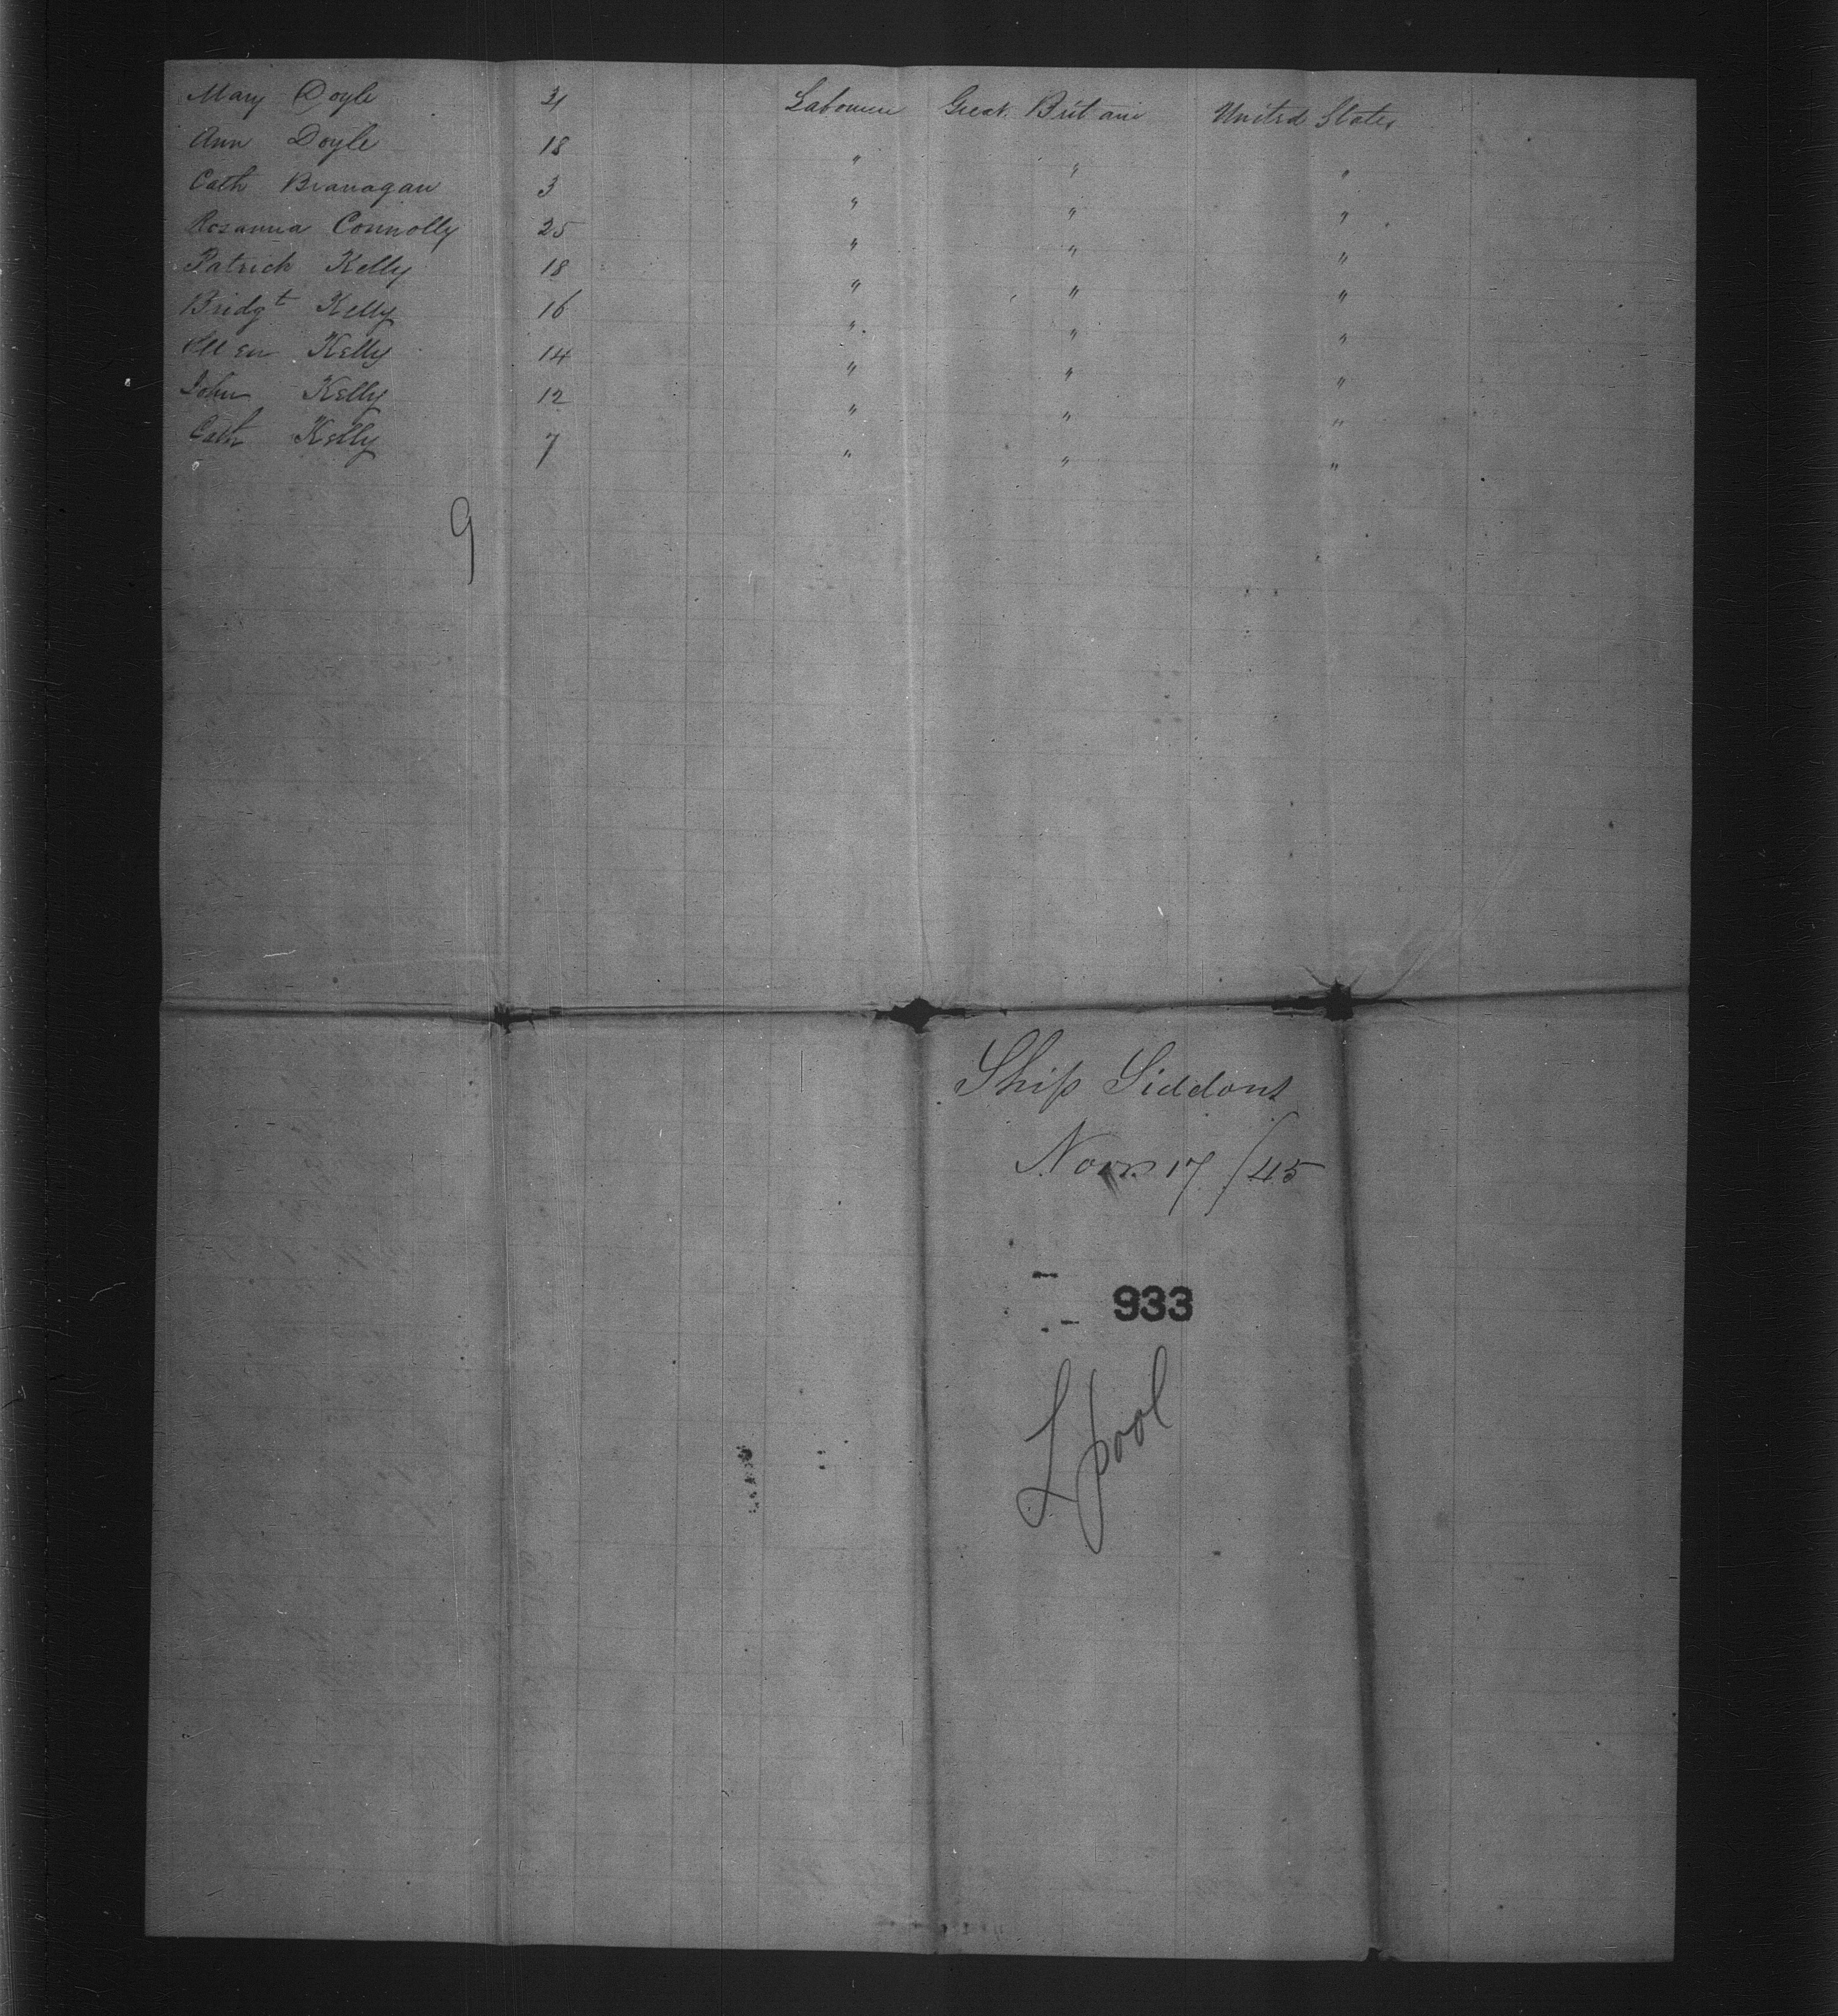 Mary Doyle 31 Labourer Great Britain United States
Ann Doyle 18 " " "
Cath Branagan 3 " " "
Rosanna Connolly 25 " " "
Patrick Kelly 18 " " "
Bridgt Kelly 16 " " "
Ellen Kelly 14 " " "
John Kelly 12 " " "
Cath Kelly 7 " " "
9
Ship Siddons
Novr 17/45
933
Lpool